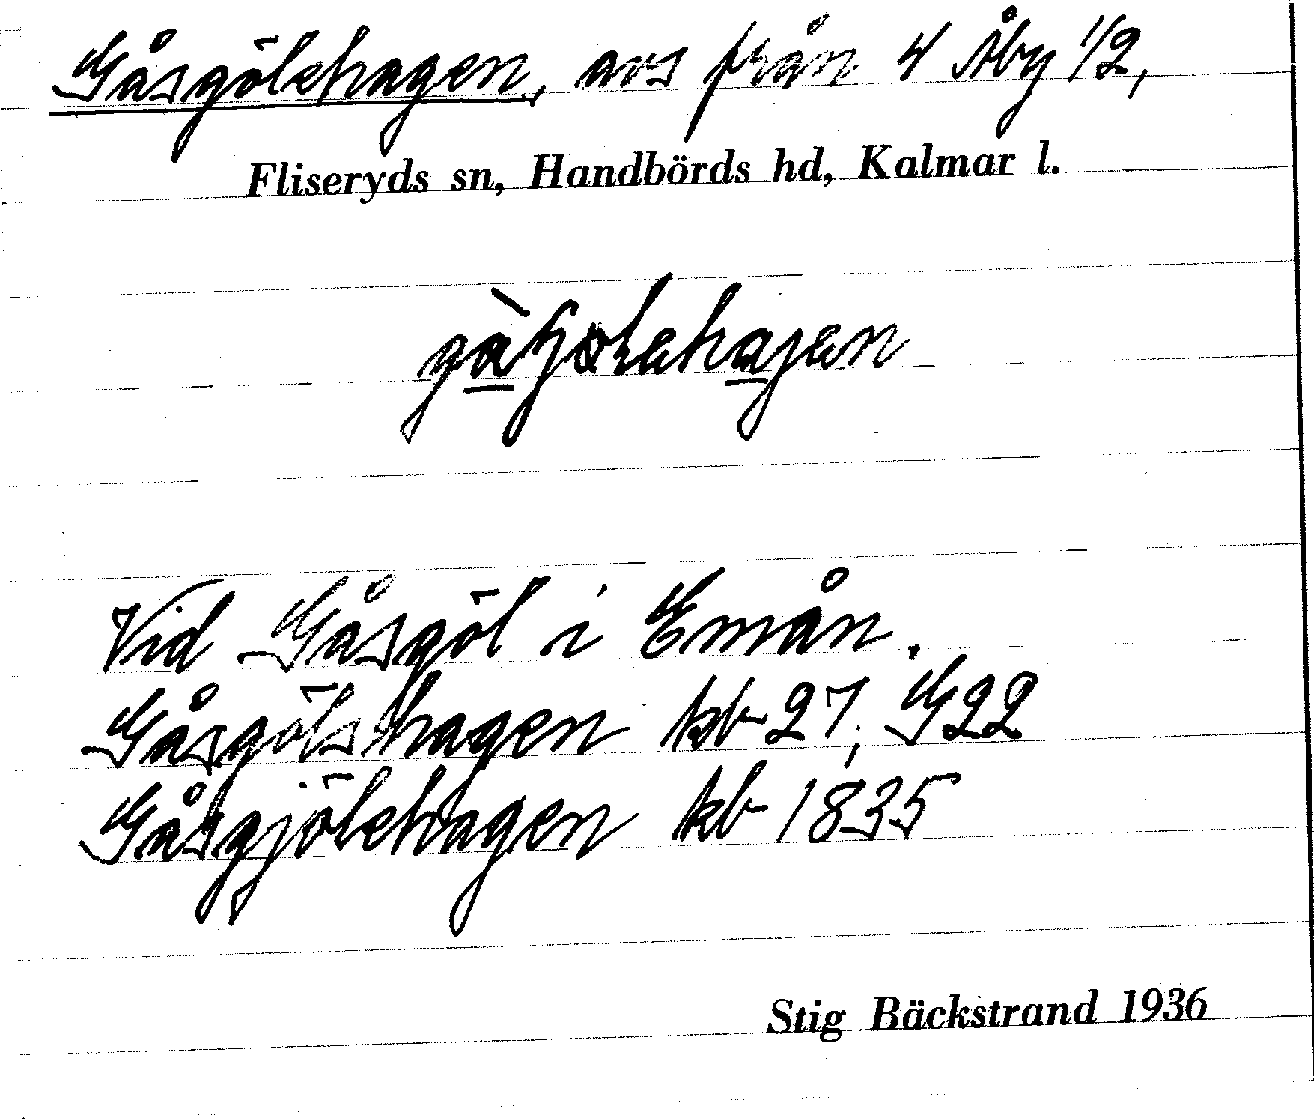 Gåsgölehagen, avs från 4 Åby 1/2,
Fliseryds sn, Handbörds hd, Kalmar l.
Vid Gåsgöl i Emån.
Gåsgölshagen kb 27, G22
Gåsgjölehagen kb 1835
Stig Bäckstrand 1936